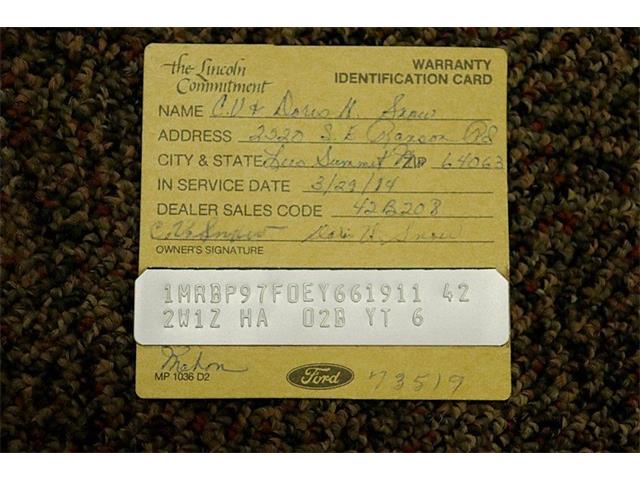 the Lincoln Commitment
WARRANTY
IDENTIFICATION CARD
NAME C.V & Doris H. Snow
ADDRESS 2520 S.E Ranson Rd
CITY & STATE Lees Summit Mo ZIP 64063
IN SERVICE DATE 3/29/84
DEALER SALES CODE 42B208
C.V. Snow Doris H. Snow
OWNER'S SIGNATURE
1MRBP97F0EY661911 42
2W1Z HA 02B YT 6
MP 1036 D2
Ford
73519